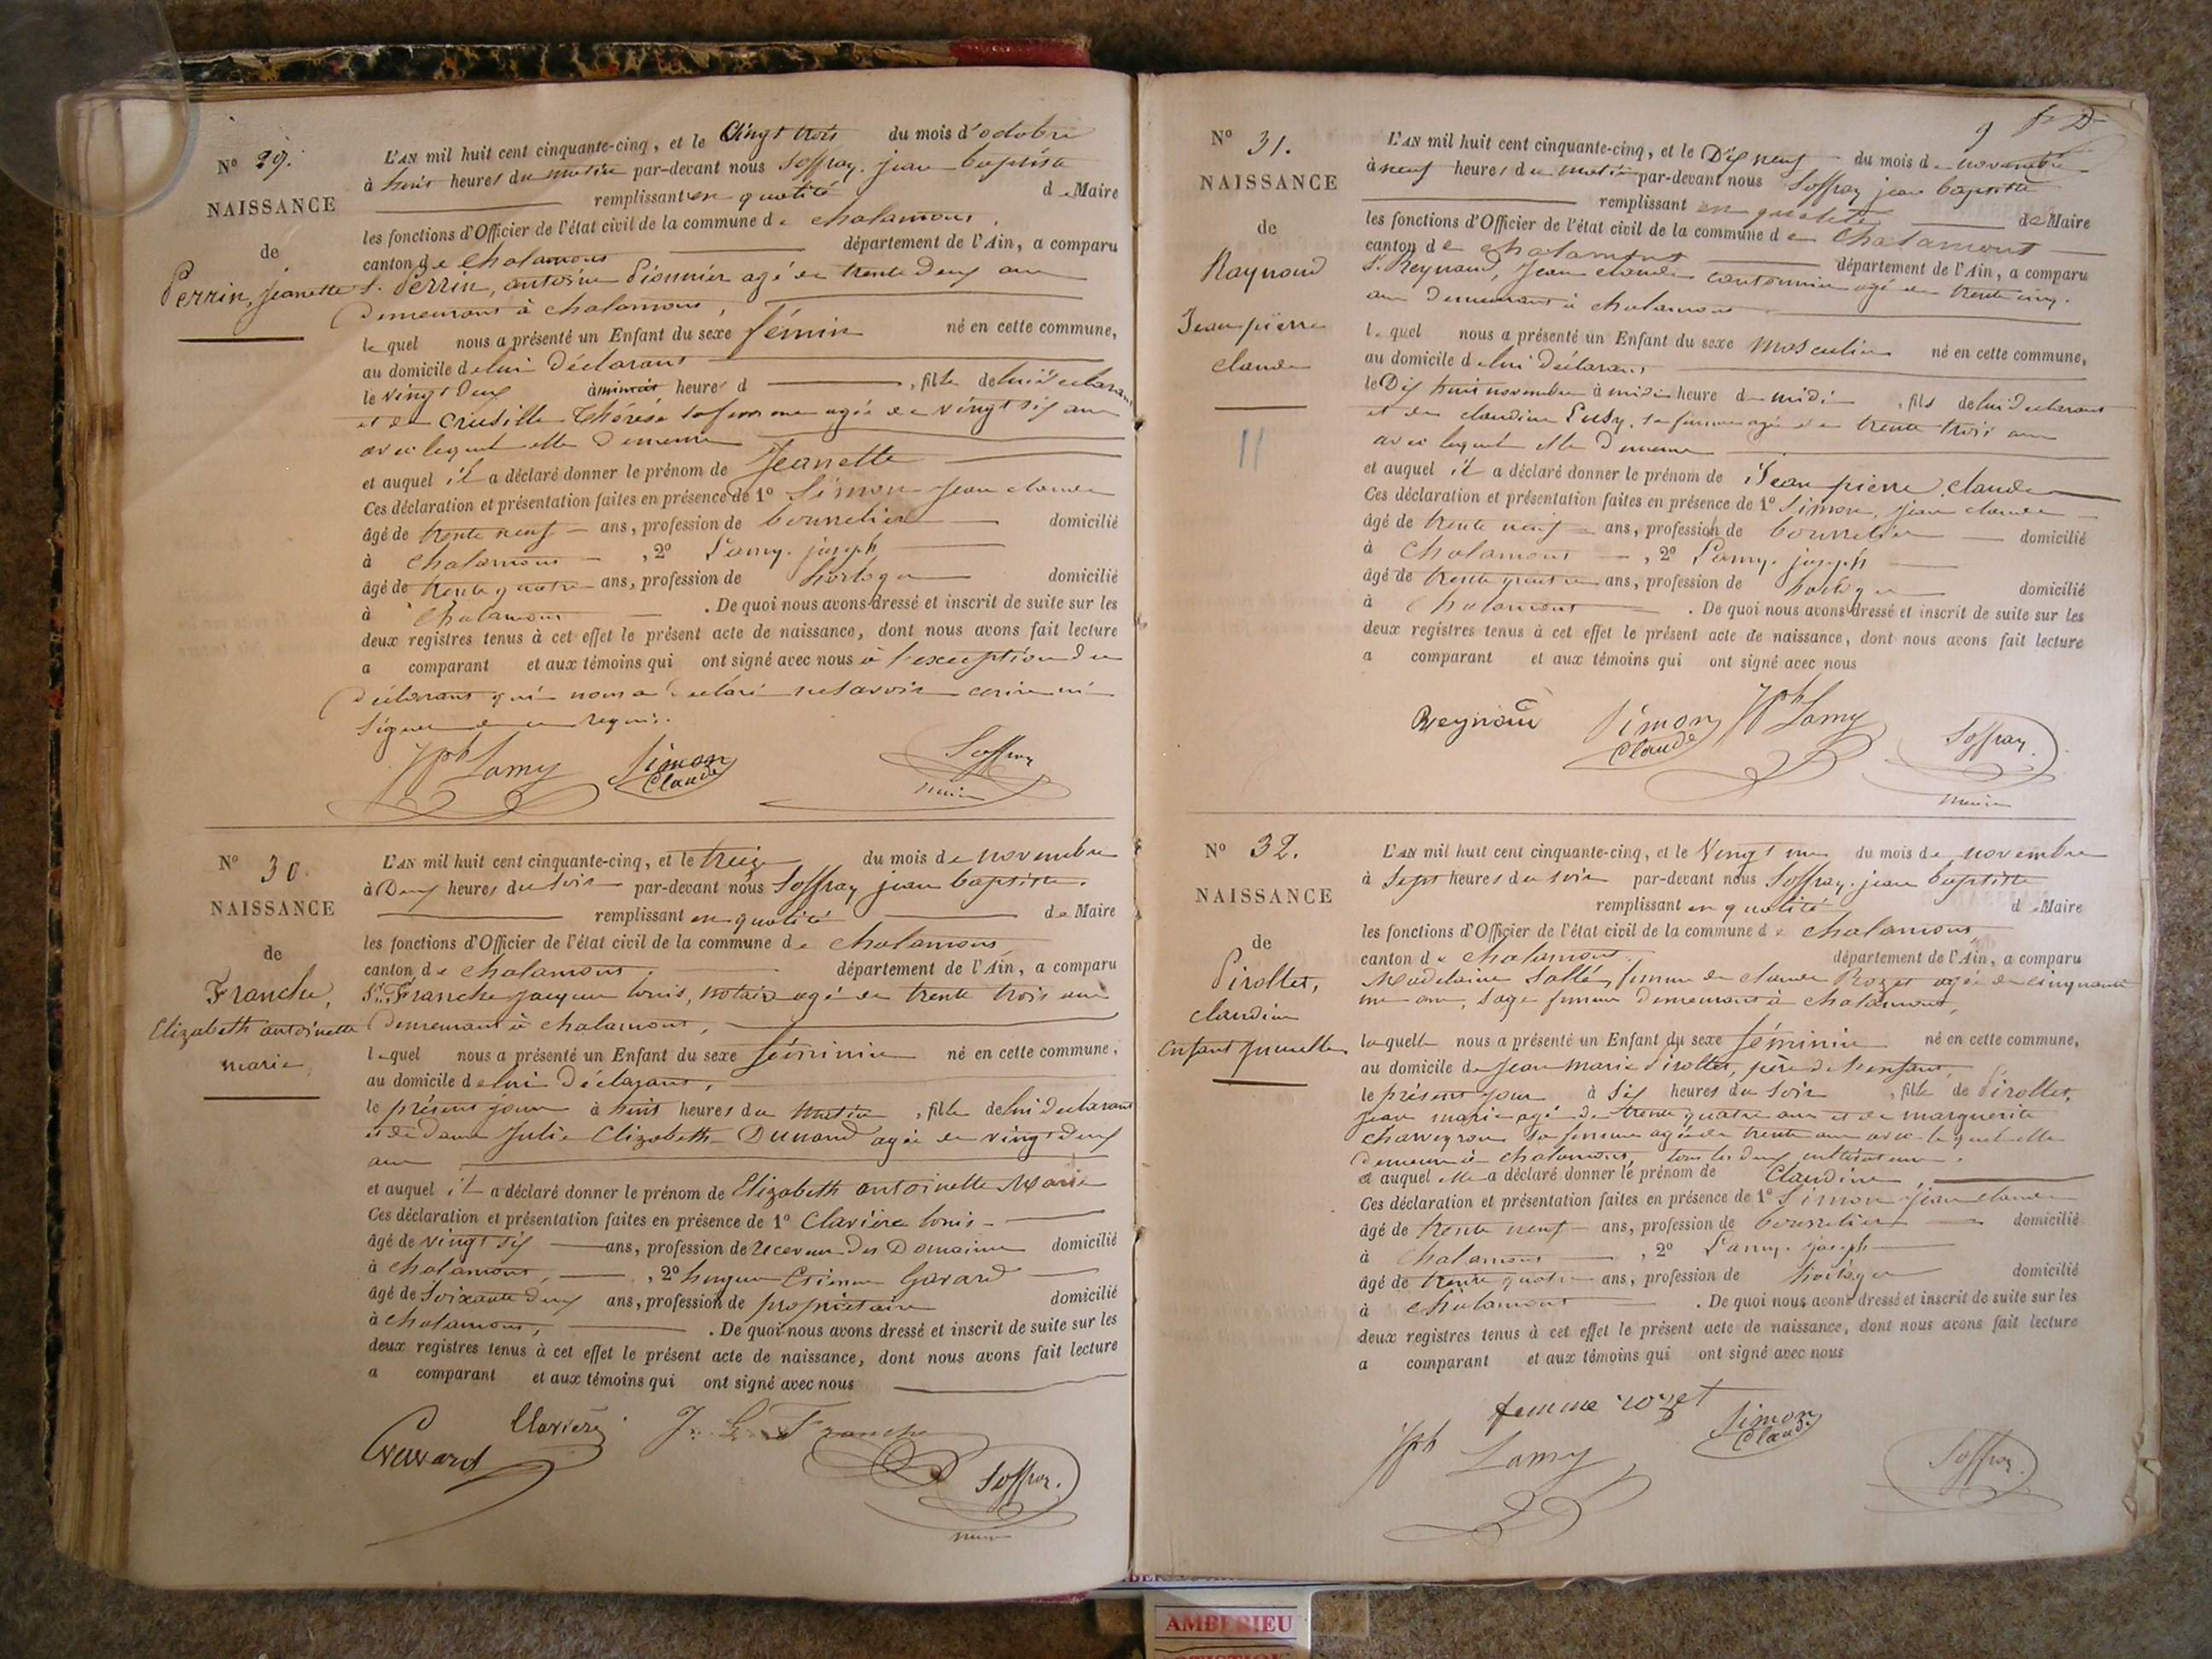 N° 29.
NAISSANCE
de
Perrin, Jeanette
L'AN mil huit cent cinquante-cinq, et le Vingt trois du mois d'octobre
à huit heures du matin par-devant nous Soffray, jean baptiste
remplissant en qualité de Maire
les fonctions d'Officier de l'état civil de la commune de chalamont,
canton de chalamont département de l'Ain, a comparu
S. Perrin, antoine Pionnier agé de trente deux ans
demeurant à chalamont,
lequel nous a présenté un Enfant du sexe féminin né en cette commune,
au domicile de lui déclarant
le vingt deux à minuit heures d , fille de lui déclarant
et de Crusille Thérèse sa femme agée de vingt six ans
avec lequel elle demeure
et auquel il a déclaré donner le prénom de Jeanette
Ces déclaration et présentation faites en présence de 1° Simon Jean claude
âgé de trente neuf ans, profession de bourrelier domicilié
à chalamont , 2° Lamy, joseph
âgé de trente quatre ans, profession de horloger domicilié
à chalamont . De quoi nous avons dressé et inscrit de suite sur les
deux registres tenus à cet effet le présent acte de naissance, dont nous avons fait lecture
a comparant et aux témoins qui ont signé avec nous à l'exception du
déclarant qui nous a déclaré ne savoir ecrire ni
signer de ce requis.
Jph Lamy Simon Claude Soffray
maire
N° 30.
NAISSANCE
de
Franche,
Elizabeth antoinette
marie
L'AN mil huit cent cinquante-cinq, et le treize du mois de novembre
à Deux heures du soir par-devant nous Soffray jean baptiste.
remplissant en qualité de Maire
les fonctions d'Officier de l'état civil de la commune de chalamont
canton de chalamont. département de l'Ain, a comparu
Sr. Franche jacques louis, notaire agé de trente trois ans
demeurant à chalamont,
lequel nous a présenté un Enfant du sexe féminin né en cette commune,
au domicile de lui déclarant,
le présent jour à huit heures du matin , fille de lui déclarant
et de dame Julie Elizabeth Dunand agée de vingt deux
ans
et auquel il a déclaré donner le prénom de Elizabeth antoinette Marie
Ces déclaration et présentation faites en présence de 1° Clavière louis
âgé de vingt six ans, profession de receveur des Domaines domicilié
à chalamont, , 2° hugues Etienne Gavard
âgé de soixante deux ans, profession de propriétaire domicilié
à chalamont, . De quoi nous avons dressé et inscrit de suite sur les
deux registres tenus à cet effet le présent acte de naissance, dont nous avons fait lecture
a comparant et aux témoins qui ont signé avec nous
Gavard Clavière J. L. Franche
Soffray.
maire
9
N° 31.
NAISSANCE
de
Raynaud
Jean pierre
claude
11
L'AN mil huit cent cinquante-cinq, et le Dix neuf du mois de novembre
à neuf heures du matin par-devant nous Soffray jean baptiste
remplissant en qualité de Maire
les fonctions d'Officier de l'état civil de la commune de chalamont
canton de chalamont département de l'Ain, a comparu
S. Reynaud, Jean claude cantonnier agé de trente cinq
ans demeurant à chalamont
lequel nous a présenté un Enfant du sexe masculin né en cette commune,
au domicile de lui déclarant
le Dix huit novembre à midi heure de midi , fils de lui déclarant
et de claudine Pusy, sa femme agée de trente trois ans
avec lequel elle demeure
et auquel il a déclaré donner le prénom de Jean pierre claude
Ces déclaration et présentation faites en présence de 1° Simon, jean claude
âgé de trente neuf ans, profession de bourrelier domicilié
à chalamont , 2° Lamy, joseph
âgé de trente quatre ans, profession de horloger domicilié
à chalamont . De quoi nous avons dressé et inscrit de suite sur les
deux registres tenus à cet effet le présent acte de naissance, dont nous avons fait lecture
a comparant et aux témoins qui ont signé avec nous
Simon Claude Jph Lamy Soffray.
maire
N° 32.
NAISSANCE
de
Pirollet,
claudine
enfant jumelle
L'AN mil huit cent cinquante-cinq, et le Vingt un du mois de novembre
à Sept heures du soir par-devant nous Soffray, jean baptiste
remplissant en qualité de Maire
les fonctions d'Officier de l'état civil de la commune de chalamont,
canton de chalamont. département de l'Ain, a comparu
Madelaine Sallé, femme de claude Rozet agée de cinquante
un ans, sage femme demeurant à chalamont,
laquelle nous a présenté un Enfant du sexe féminin né en cette commune,
au domicile de jean marie Pirollet, père de l'enfant,
le présent jour à Six heures du soir , fille de Pirollet,
jean marie agé de trente quatre ans et de marguerite
charveyron sa femme agée de trente ans avec lequel elle
demeure à chalamont, tous les deux cultivateurs.
et auquel elle a déclaré donner le prénom de Claudine,
Ces déclaration et présentation faites en présence de 1° Simon jean claude
âgé de trente neuf ans, profession de bourrelier domicilié
à chalamont , 2° Lamy, joseph
âgé de trente quatre ans, profession de horloger domicilié
à chalamont . De quoi nous avons dressé et inscrit de suite sur les
deux registres tenus à cet effet le présent acte de naissance, dont nous avons fait lecture
a comparant et aux témoins qui ont signé avec nous
femme rozet Simon Claude
Jph Lamy Soffray.
AMBERIEU